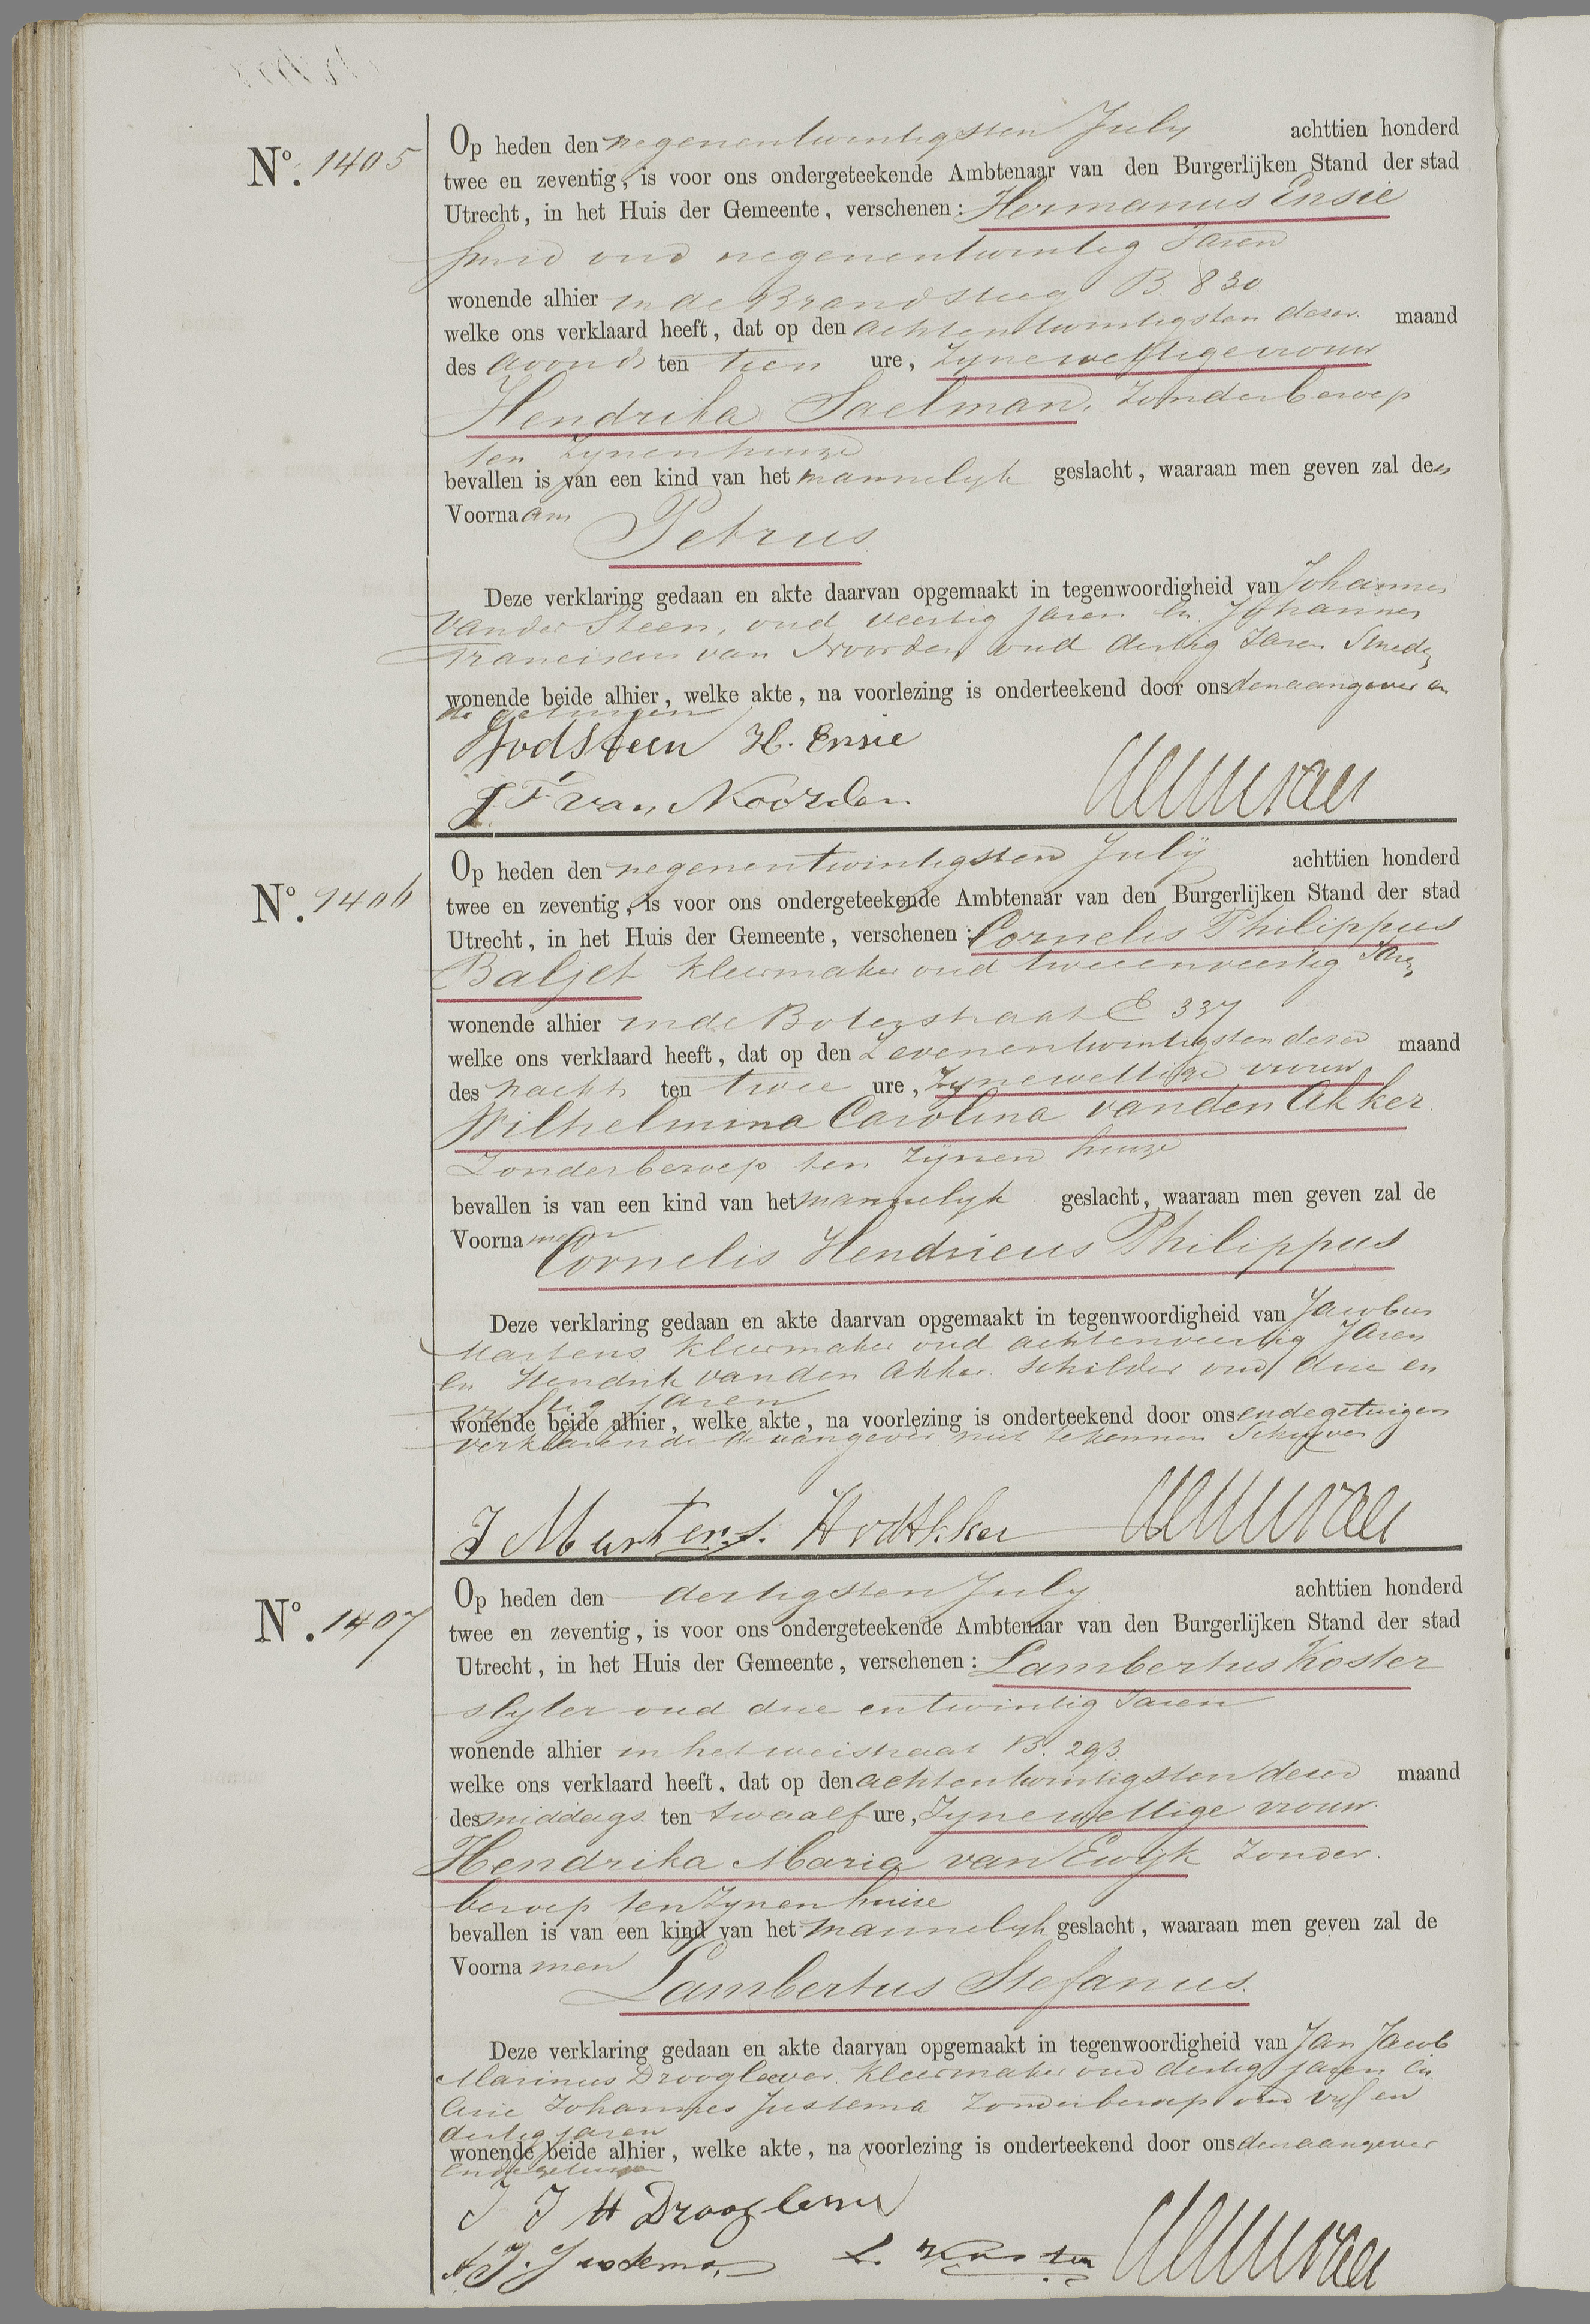 Nº. 1405
Op heden den negenentwintigsten July achttien honderd
twee en zeventig, is voor ons ondergeteekende Ambtenaar van den Burgerlijken Stand der stad
Utrecht, in het Huis der Gemeente, verschenen: Hermanus Ensie
smid oud negenentwintig Jaren
wonende alhier in de Brandsteeg B. 830
welke ons verklaard heeft, dat op den achtentwintigsten dezer maand
des avonds ten tien ure, zyne wettige vrouw
Hendrika Saelman, zonder beroep
ten zynen huize
bevallen is van een kind van het mannelyk geslacht, waaraan men geven zal den
Voornaam Petrus
Deze verklaring gedaan en akte daarvan opgemaakt in tegenwoordigheid van Johannes
van der Steen, oud veertig jaren en Johannes
Franciscus van Noorden oud dertig Jaren Smeden
wonende beide alhier, welke akte, na voorlezing is onderteekend door ons den aangever en
de getuigen
JvdSteen H. Ensie
J F van Noorden
Nº. 1406
Op heden den negenentwintigsten July achttien honderd
twee en zeventig, is voor ons ondergeteekende Ambtenaar van den Burgerlijken Stand der stad
Utrecht, in het Huis der Gemeente, verschenen: Cornelis Philippus
Baljet kleermaker oud tweeenveertig Jaren
wonende alhier in de Boterstraat E 337
welke ons verklaard heeft, dat op den Zevenentwintigsten dezer maand
des nachts ten twee ure, zyne wettige vrouw
Wilhelmina Carolina van den Akker
Zonder beroep ten zynen huize
bevallen is van een kind van het mannelyk geslacht, waaraan men geven zal de
Voornamen Cornelis Hendricus Philippus
Deze verklaring gedaan en akte daarvan opgemaakt in tegenwoordigheid van Jacobus
Martens kleermaker oud achtenveertig Jaren
en Hendrik van den Akker Schilder oud drie en
vyftig jaren
wonende beide alhier, welke akte, na voorlezing is onderteekend door ons en de getuigen
verklarende de aangever niet te kunnen Schryven
J Martens. HvdAkker
Nº. 1407
Op heden den dertigsten July achttien honderd
twee en zeventig, is voor ons ondergeteekende Ambtenaar van den Burgerlijken Stand der stad
Utrecht, in het Huis der Gemeente, verschenen: Lambertus Koster
slyter oud drie entwintig Jaren
wonende alhier in het weistraat B. 293
welke ons verklaard heeft, dat op den achtentwintigsten dezer maand
des middags ten twaalf ure, zyne wettige vrouw
Hendrika Maria van Ewyk zonder
beroep ten zynen huize
bevallen is van een kind van het mannelyk geslacht, waaraan men geven zal de
Voornamen Lambertus Stefanus
Deze verklaring gedaan en akte daarvan opgemaakt in tegenwoordigheid van Jan Jacob
Marinus Droogleever kleermaker oud dertig jaren en
Arie Johannes Justema zonder beroep oud vyf en
dertig jaren
wonende beide alhier, welke akte, na voorlezing is onderteekend door ons den aangever
en de getuigen
J J M Droogleever
A J. Justema L. Koster